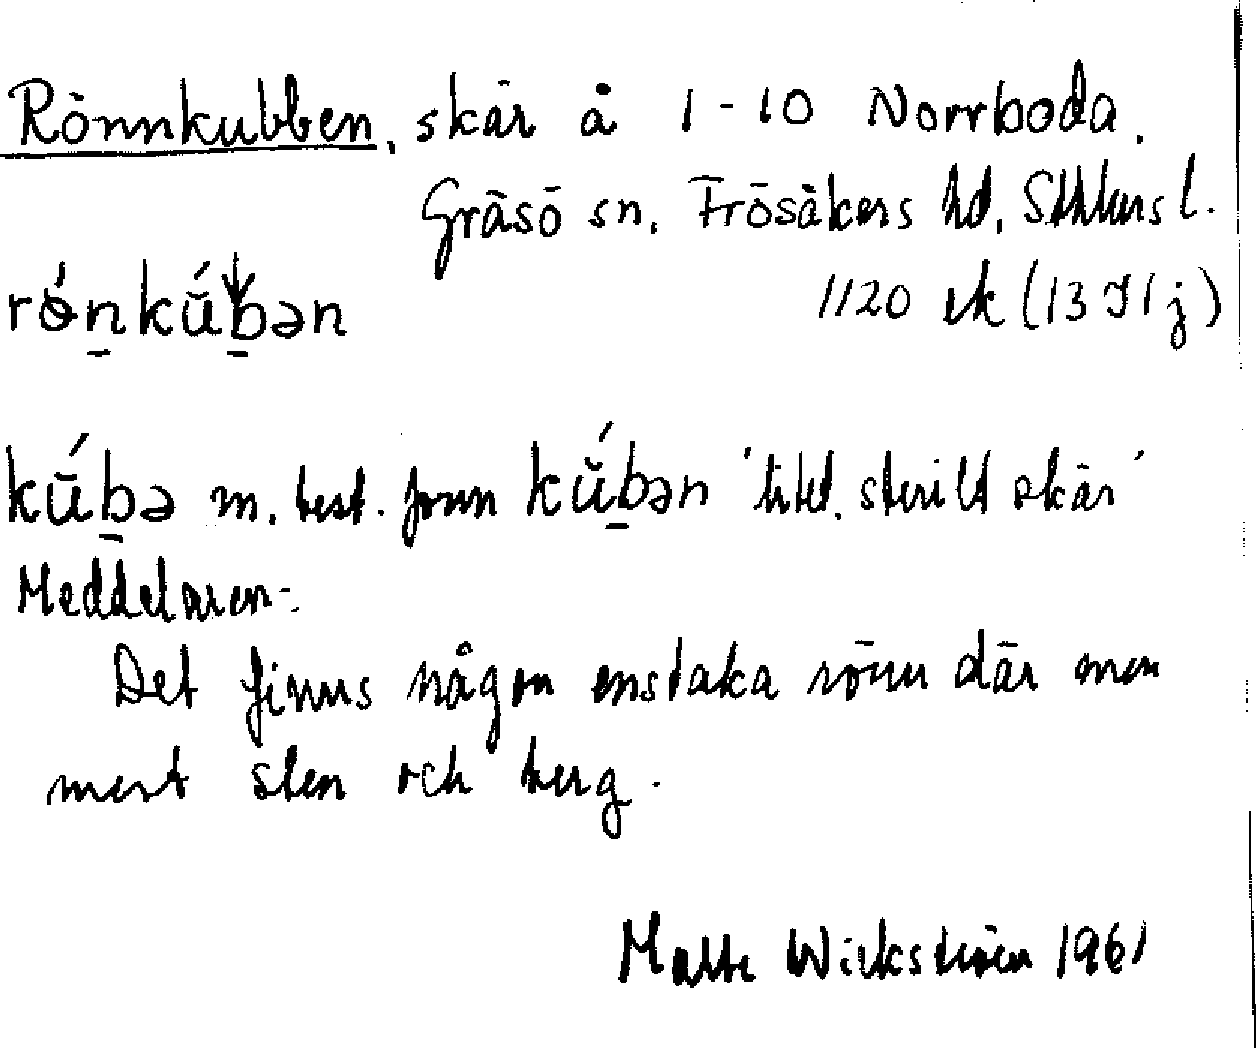 Rönnkubben, skär å 1-10 Norrboda.
Gräsö sn. Frösåkers hd. Sthlms l.
rө́n̲kŭ́b̲ən 1120 ek (13 I 1 j)
kŭ́b̲ə m. best. form kŭ́b̲ən 'litet, sterilt skär'
Meddelaren:
Det finns någon enstaka rönn där men
mest sten och berg.
Matts Wickström 1961